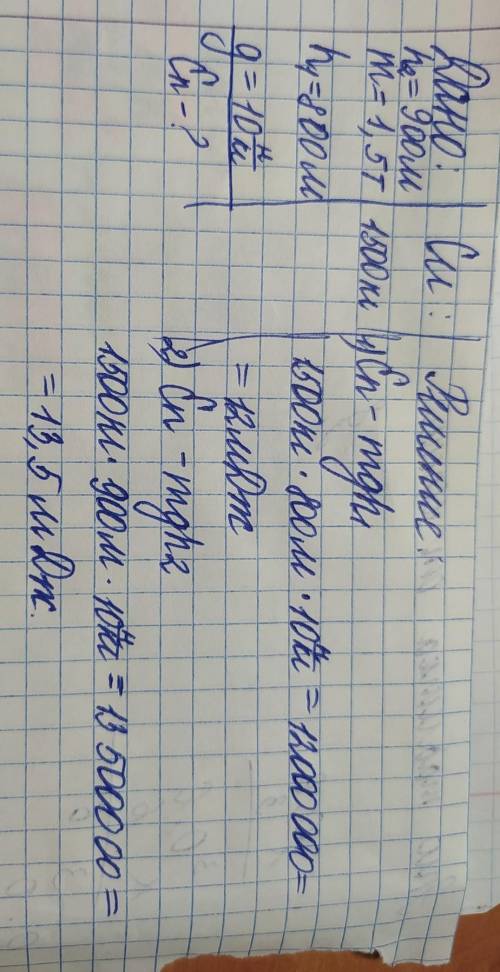 Дано:
h₂=900м
m=1,5т
h₁=800м
g=10 Н/кг
Еп-?
Си:
1500кг
Решение:
1) Еп - mgh₁
1500кг · 800м · 10 Н/кг = 12000000=
= 12мДж
2) Еп - mgh₂
1500кг · 900м · 10 Н/кг = 13500000=
= 13,5 мДж.